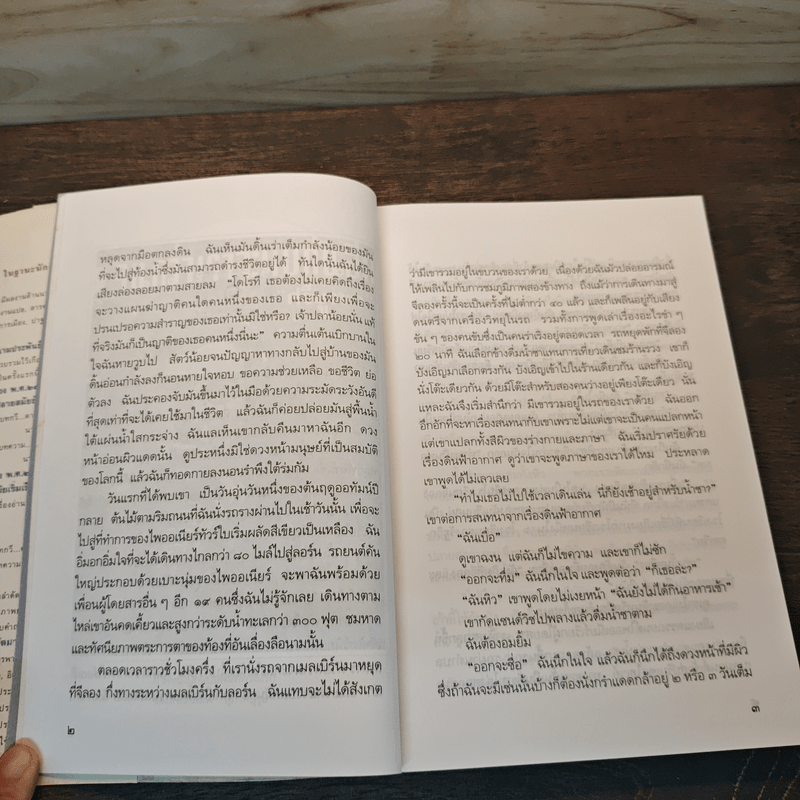 หลุดจากมือตกลงดิน ฉันเห็นมันดิ้นเร่าเต็มกำลังน้อยของมัน
ที่จะไปสู่ท้องน้ำซึ่งมันสามารถดำรงชีวิตอยู่ได้ ทันใดนั้นฉันได้ยิน
เสียงล่องลอยมาตามสายลม “โดโรที เธอต้องไม่เคยคิดถึงเรื่อง
จะวางแผนฆ่าญาติคนใดคนหนึ่งของเธอ และก็เพียงเพื่อจะ
ปรนเปรอความสำราญของเธอเท่านั้นมิใช่หรือ? เจ้าปลาน้อยนั่น แท้
ที่จริงมันก็เป็นญาติของเธอคนหนึ่งนี่นะ” ความตื่นเต้นเบิกบานใน
ใจฉันหายวูบไป สัตว์น้อยจนปัญญาหาทางกลับไปสู่บ้านของมัน
ดิ้นอ่อนกำลังลงก็นอนหายใจหอบ ขอความช่วยเหลือ ขอชีวิต ย่อ
ตัวลง ฉันประคองจับมันขึ้นมาไว้ในมือด้วยความระมัดระวังอันดี
ที่สุดเท่าที่จะได้เคยใช้มาในชีวิต แล้วฉันก็ค่อยปล่อยมันสู่พื้นน้ำ
ใต้แผ่นน้ำใสกระจ่าง ฉันแลเห็นเขากลับคืนมาหาฉันอีก ดวง
หน้าอ่อนผิวแดดนั้น ดูประหนึ่งมิใช่ดวงหน้ามนุษย์ที่เป็นสมบัติ
ของโลกนี้ แล้วฉันก็ทอดกายลงนอนรำพึงใต้ร่มกัม
วันแรกที่ได้พบเขา เป็นวันอุ่นวันหนึ่งของต้นฤดูออทัมน์ปี
กลาย ต้นไม้ตามริมถนนที่ฉันนั่งรถรางผ่านไปในเช้าวันนั้น เพื่อจะ
ไปสู่ที่ทำการของไพออเนียร์ทัวร์ใบเริ่มผลัดสีเขียวเป็นเหลือง ฉัน
อิ่มอกอิ่มใจที่จะได้เดินทางไกลกว่า ๘๐ ไมล์ไปสู่ลอร์น รถยนต์คัน
ใหญ่ประกอบด้วยเบาะนุ่มของไพออเนียร์ จะพาฉันพร้อมด้วย
เพื่อนผู้โดยสารอื่น ๆ อีก ๑๙ คนซึ่งฉันไม่รู้จักเลย เดินทางตาม
ไหล่เขาอันคดเคี้ยวและสูงกว่าระดับน้ำทะเลกว่า ๓๐๐ ฟุต ชมหาด
และทัศนียภาพตระการตาของท้องที่อันเลื่องลือนามนั้น
ตลอดเวลาราวชั่วโมงครึ่ง ที่เรานั่งรถจากเมลเบิร์นมาหยุด
ที่จีลอง กึ่งทางระหว่างเมลเบิร์นกับลอร์น ฉันแทบจะไม่ได้สังเกต
๒
ว่ามีเขารวมอยู่ในขบวนของเราด้วย เนื่องด้วยฉันมัวปล่อยอารมณ์
ให้เพลินไปกับการชมภูมิภาคสองข้างทาง ถึงแม้ว่าการเดินทางมาสู่
จีลองครั้งนี้จะเป็นครั้งที่ไม่ต่ำกว่า ๔๐ แล้ว และก็เพลินอยู่กับเสียง
ดนตรีจากเครื่องวิทยุในรถ รวมทั้งการพูดเล่าเรื่องอะไรขำ ๆ
ขัน ๆ ของคนขับซึ่งเป็นคนร่าเริงอยู่ตลอดเวลา รถหยุดพักที่จีลอง
๒๐ นาที ฉันเลือกข้างดื่มน้ำชาแทนการเที่ยวเดินชมร้านรวง เขาก็
บังเอิญมาเลือกตรงกัน บังเอิญเข้าไปในร้านเดียวกัน และก็บังเอิญ
นั่งโต๊ะเดียวกัน ด้วยมีโต๊ะสำหรับสองคนว่างอยู่เพียงโต๊ะเดียว นั่น
แหละฉันจึงเริ่มสำนึกว่า มีเขารวมอยู่ในรถของเราด้วย ฉันออก
อึกอักที่จะหาเรื่องสนทนากับเขาเพราะไม่แต่เขาจะเป็นคนแปลกหน้า
แต่เขาแปลกทั้งสีผิวของร่างกายและภาษา ฉันเริ่มปราศรัยด้วย
เรื่องดินฟ้าอากาศ ดูว่าเขาจะพูดภาษาของเราได้ไหม ประหลาด
เขาพูดได้ไม่เลวเลย
“ทำไมเธอไม่ไปใช้เวลาเดินเล่น นี่ก็ยังเช้าอยู่สำหรับน้ำชา?”
เขาต่อการสนทนาจากเรื่องดินฟ้าอากาศ
“ฉันเบื่อ”
ดูเขาฉงน แต่ฉันก็ไม่ไขความ และเขาก็ไม่ซัก
“ออกจะทึ่ม” ฉันนึกในใจ และพูดต่อว่า “ก็เธอล่ะ?”
“ฉันหิว” เขาพูดโดยไม่เงยหน้า “ฉันยังไม่ได้กินอาหารเช้า”
เขากัดแซนด์วิชไปพลางแล้วดื่มน้ำชาตาม
ฉันต้องอมยิ้ม
“ออกจะซื่อ” ฉันนึกในใจ แล้วฉันก็นึกได้ถึงดวงหน้าที่มีผิว
ซึ่งถ้าฉันจะมีเช่นนั้นบ้างก็ต้องนั่งกรำแดดกล้าอยู่ ๒ หรือ ๓ วันเต็ม
๓